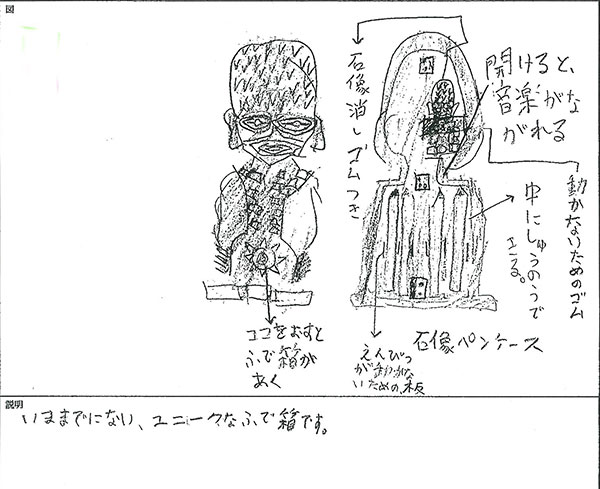 図
石像消しゴムつき
開けると、
音楽がな
がれる
動かないためのゴム
中にしゅうのうで
きる。
ココをおすと
ふで箱が
あく
えんぴつ
が動かな
いための板
石像ペンケース
説明
いままでにない、ユニークなふで箱です。